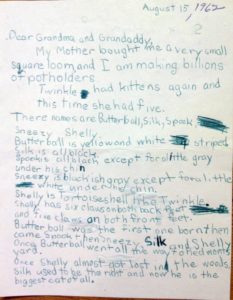 August 15, 1962
2
Dear Grandma and Grandaddy,
My Mother bought me a very small
square loom, and I am making billions
of potholders.
Twinkle had kittens again and
this time she had five.
There names are Butterball, Silk, Spook
Sneezy Shelly.
Butterball is yellow and white striped
Silk is all black
Spook is all black except for a little gray
under his chin
Sneezy is blackish gray except for a little
white under the chin.
Shelly is tortoise shell like Twinkle.
Shelly has six claws on both back feet
and five claws on both front feet.
Butterball was the first one born then
came Spook then Sneezy Silk and Shelly
Once Butterball went all the way to
yard.
Once Shelly almost got lost in the woods.
Silk used to be the runt and now he is the
biggest cat of all.